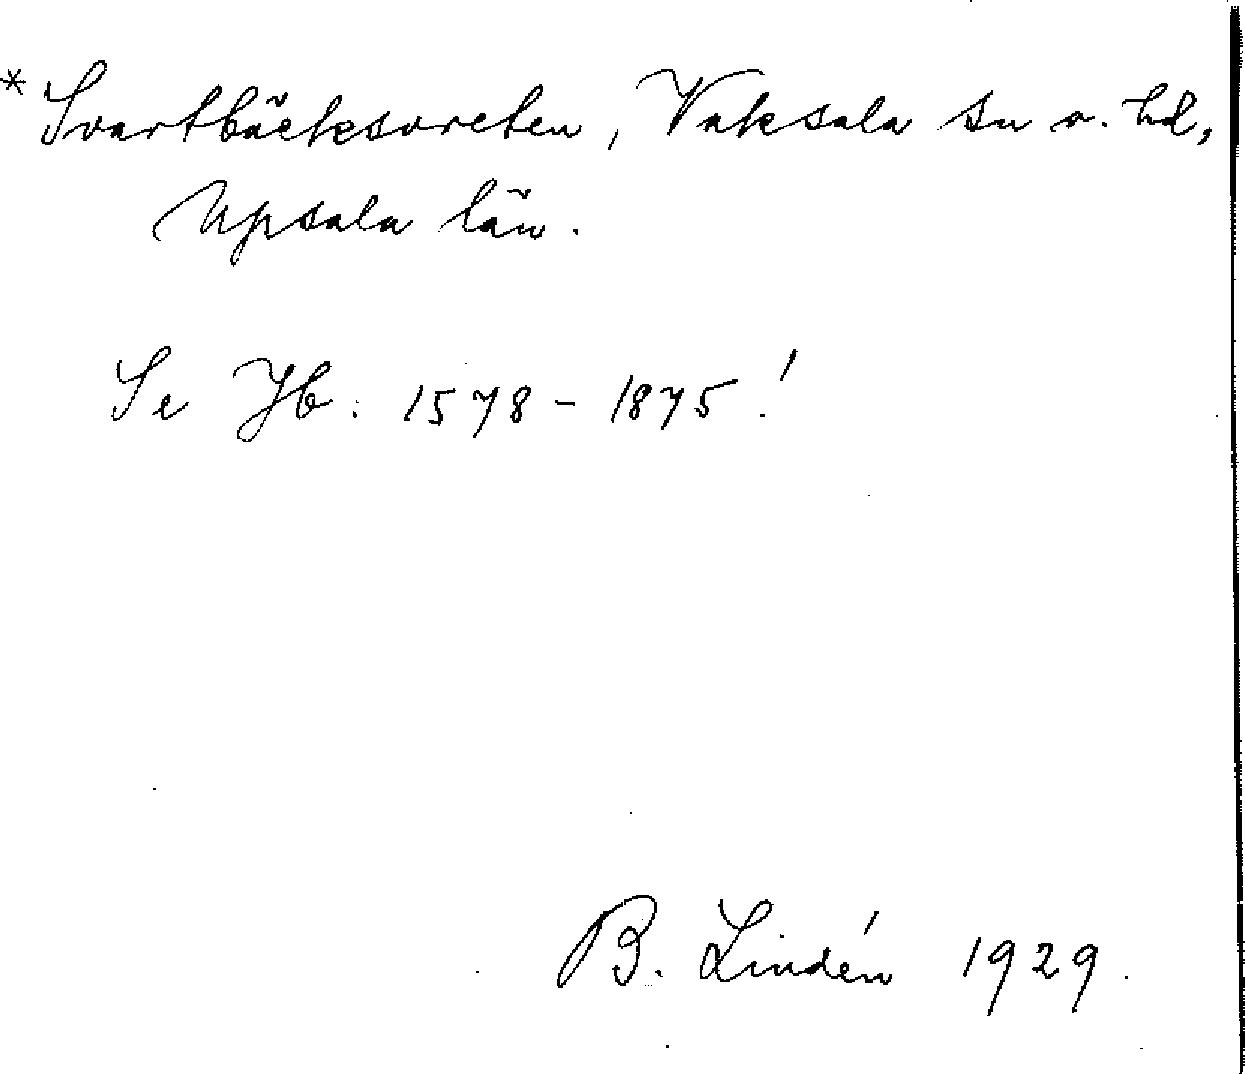 * Svartbäcksvreten, Vaksala sn o. hd,
Upsala län.
Se Jb: 1578 - 1875!
B. Lindén 1929.